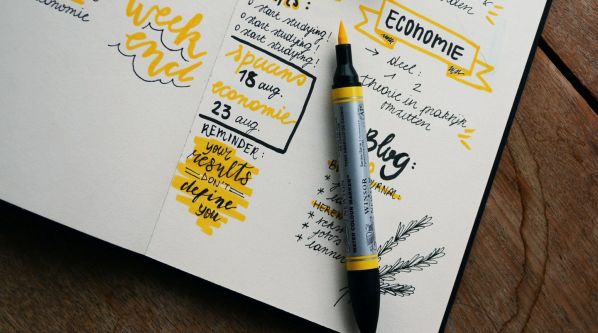 economie
week
end
0 start studying!
0 start studying!
0 start studying!
spaans
18 aug.
economie
23 aug.
REMINDER:
your
results
DON'T
define
you
ECONOMIE
→ deel:
1 2
theorie in praktijk
omzetten
Blog:
JOURNAL:
WATER COLOUR MARKER
WINSOR